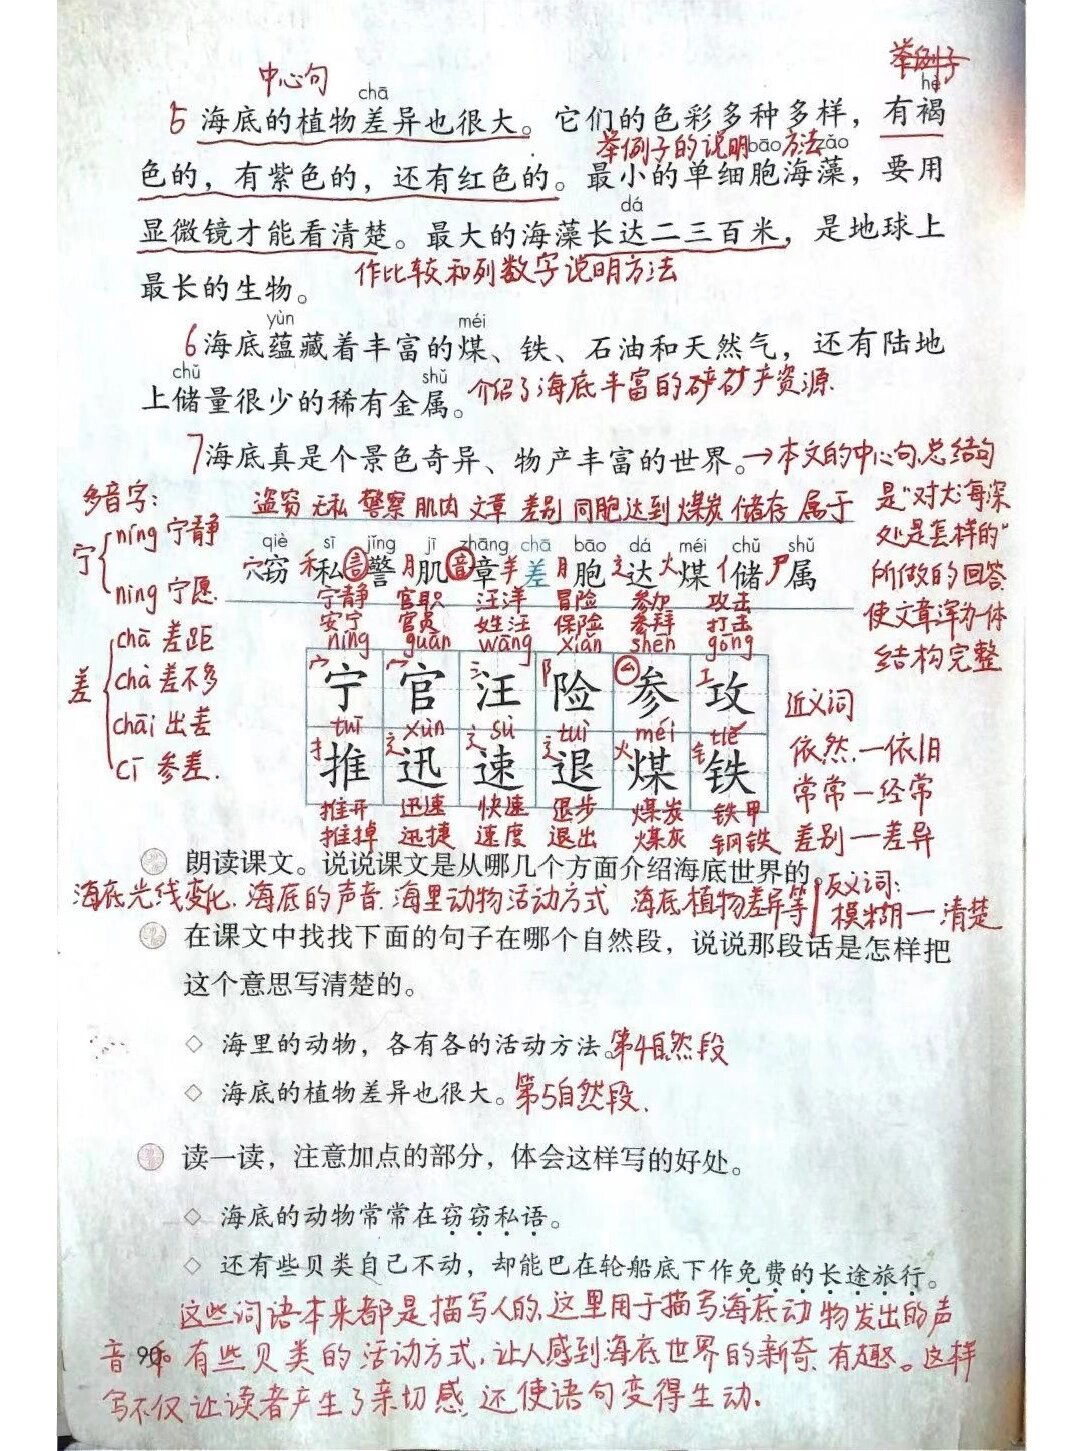 举例子
中心句
chā hè
5 海底的植物差异也很大。它们的色彩多种多样，有褐
举例子的说明方法
bāo zǎo
色的，有紫色的，还有红色的。最小的单细胞海藻，要用
dá
显微镜才能看清楚。最大的海藻长达二三百米，是地球上
作比较和列数字说明方法
最长的生物。
yùn méi
6 海底蕴藏着丰富的煤、铁、石油和天然气，还有陆地
chǔ shǔ
上储量很少的稀有金属。
介绍了海底丰富的矿产资源.
7 海底真是个景色奇异、物产丰富的世界。
→本文的中心句,总结句
是"对大海深
处是怎样的"
所做的回答
使文章浑为一体
结构完整
多音字:
宁
níng 宁静
nìng 宁愿.
差
chā 差距
chà 差不多
chāi 出差
cī 参差.
盗窃 无私 警察 肌肉 文章 差别 同胞 达到 煤炭 储存 属于
qiè sī jǐng jī zhāng chā bāo dá méi chǔ shǔ
穴窃 禾私 言警 月肌 音章 羊差 月胞 辶达 火煤 亻储 尸属
宁静 官职 汪洋 冒险 参加 攻击
安宁 官员 姓汪 保险 参拜 打击
níng guān wāng xiǎn shēn gōng
宀宁 宀官 氵汪 阝险 厶参 工攻
tuī xùn sù tuì méi tiě
扌推 辶迅 辶速 辶退 火煤 钅铁
推开 迅速 快速 退步 煤炭 铁甲
推掉 迅捷 速度 退出 煤灰 钢铁
近义词
依然.—依旧
常常—经常
差别—差异
朗读课文。说说课文是从哪几个方面介绍海底世界的。
海底光线变化.海底的声音.海里动物活动方式 海底植物差异等
反义词:
模糊—清楚
在课文中找找下面的句子在哪个自然段，说说那段话是怎样把
这个意思写清楚的。
◇ 海里的动物，各有各的活动方法。第4自然段
◇ 海底的植物差异也很大。第5自然段.
读一读，注意加点的部分，体会这样写的好处。
◇ 海底的动物常常在窃窃私语。
◇ 还有些贝类自己不动，却能巴在轮船底下作免费的长途旅行。
这些词语本来都是描写人的,这里用于描写海底动物发出的声
音和有些贝类的活动方式,让人感到海底世界的新奇.有趣。这样
写不仅让读者产生了亲切感,还使语句变得生动.
90